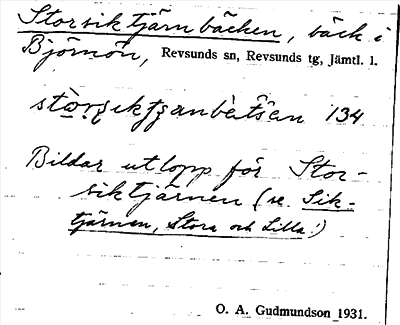 Storsiktjärnbäcken, bäck i
Björnön, Revsunds sn, Revsunds tg, Jämtl. l.
134
Bildar utlopp för Stor-
siktjärnen (se. Sik-
tjärnen, Stora och Lilla!)
O. A. Gudmundson 1931.